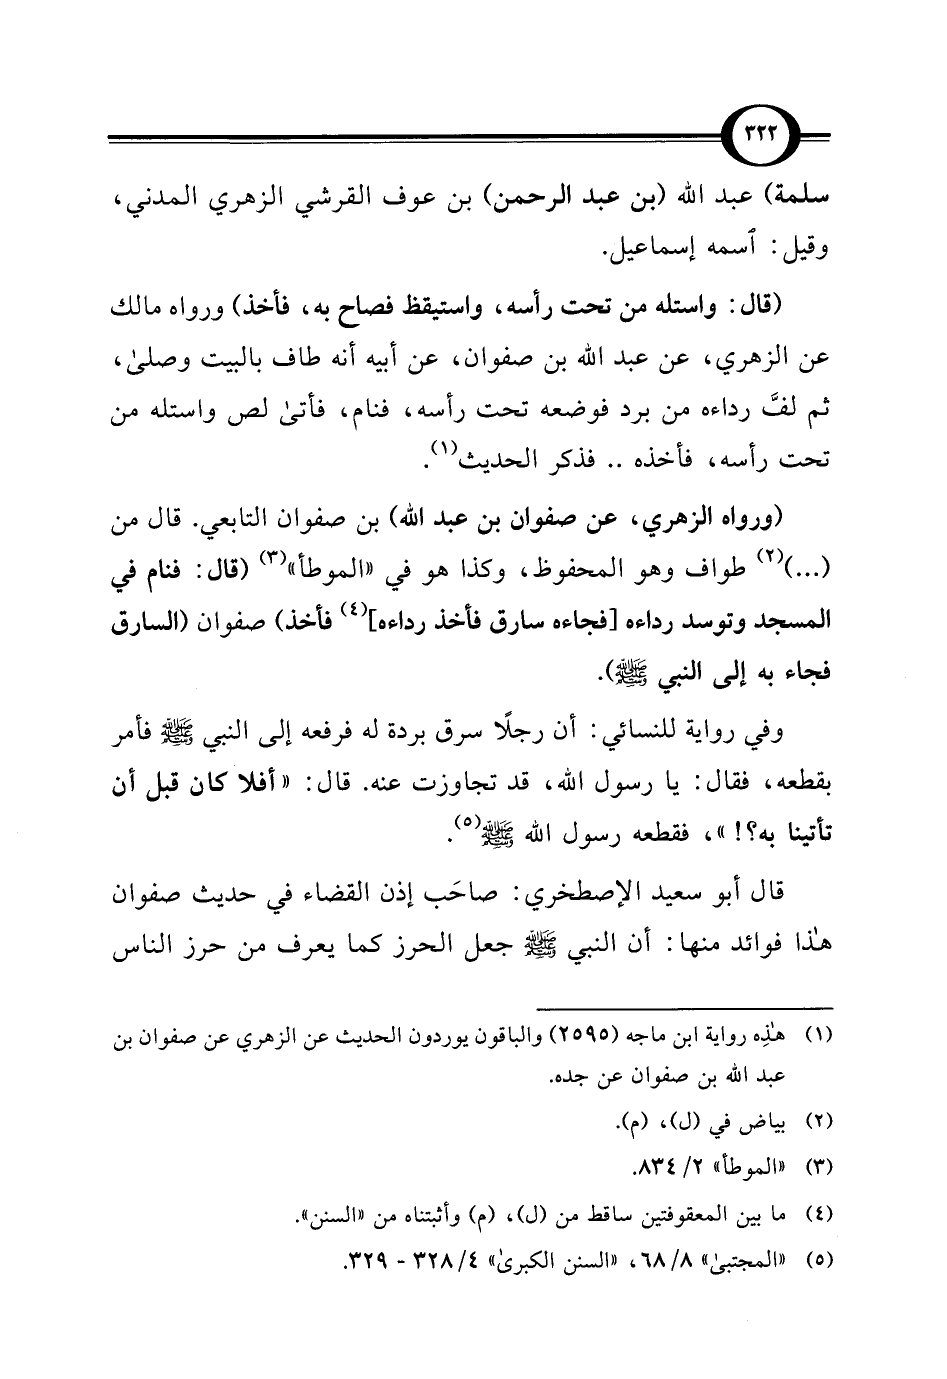 ٣٢٢
سلمة) عبد الله (بن عبد الرحمن) بن عوف القرشي الزهري المدني،
وقيل: ٱسمه إسماعيل.
(قال: واستله من تحت رأسه، واستيقظ فصاح به، فأخذ) ورواه مالك
عن الزهري، عن عبد الله بن صفوان، عن أبيه أنه طاف بالبيت وصلىٰ،
ثم لفَّ رداءه من برد فوضعه تحت رأسه، فنام، فأتىٰ لص واستله من
تحت رأسه، فأخذه .. فذكر الحديث(١).
(ورواه الزهري، عن صفوان بن عبد الله) بن صفوان التابعي. قال من
(...)(٢) طواف وهو المحفوظ، وكذا هو في «الموطأ»(٣) (قال: فنام في
المسجد وتوسد رداءه [فجاءه سارق فأخذ رداءه](٤) فأخذ) صفوان (السارق
فجاء به إلى النبي ﷺ).
وفي رواية للنسائي: أن رجلًا سرق بردة له فرفعه إلى النبي ﷺ فأمر
بقطعه، فقال: يا رسول الله، قد تجاوزت عنه. قال: «أفلا كان قبل أن
تأتينا به؟!»، فقطعه رسول الله ﷺ(٥).
قال أبو سعيد الإصطخري: صاحَب إذن القضاء في حديث صفوان
هٰذا فوائد منها: أن النبي ﷺ جعل الحرز كما يعرف من حرز الناس
(١) هٰذِه رواية ابن ماجه (٢٥٩٥) والباقون يوردون الحديث عن الزهري عن صفوان بن
عبد الله بن صفوان عن جده.
(٢) بياض في (ل)، (م).
(٣) «الموطأ» ٢/ ٨٣٤.
(٤) ما بين المعقوفتين ساقط من (ل)، (م) وأثبتناه من «السنن».
(٥) «المجتبىٰ» ٨/ ٦٨، «السنن الكبرىٰ» ٤/ ٣٢٨ - ٣٢٩.